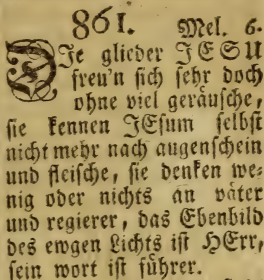 861. Mel. 6.
DJe glieder JESU
freu'n sich sehr doch
ohne viel geräusche,
sie kennen JEsum selbst
nicht mehr nach augenschein
und fleische, sie denken we-
nig oder nichts an väter
und regierer, das Ebenbild
des ewgen Lichts ist HErr,
sein wort ist führer.